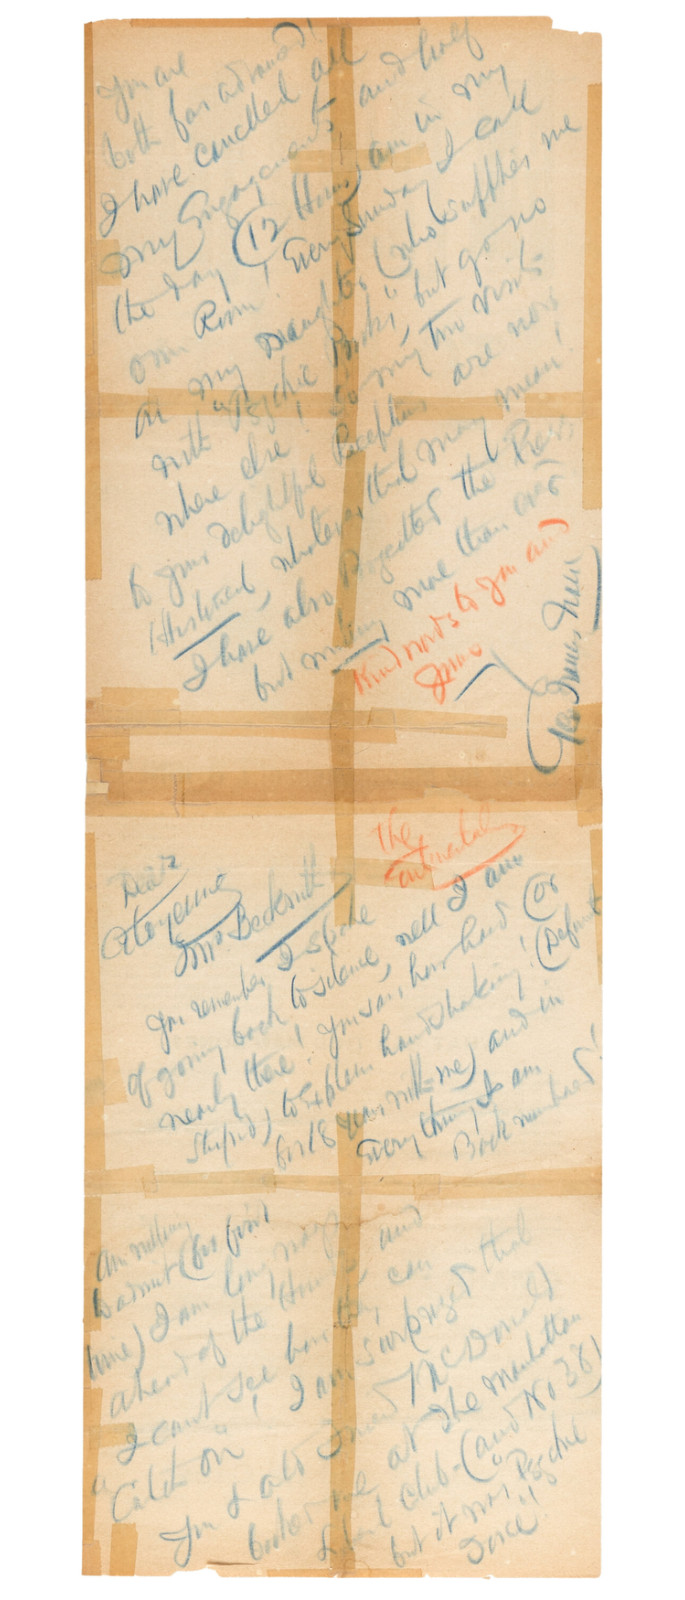 You are
both far advanced!
I have cancelled all
my Engagements, and half
the day (12 Hours) am in my
own Room! Every Sunday I call
on my Daughter (who supplies me
with "Psychic Books" but go no
where else! So my two visits
to your delightful Receptions are now
Historical, whatever that may mean!
I have also forgotten the Press,
but writing more than ever
Kind words to you and
Geo Francis Train
The
Continental
Dear
Citoyenne
Mrs Beckwith
You remember I spoke
of going back to silence, well I am
nearly there! You saw how hard (or
stupid) to explain handshaking! (Defunct
for 18 years with me) and in
Everything I am
Book
Am willing
to admit (for first
time) I am long
ahead of the and
I cant see how they can
"Catch on"! I am surprized that
You & also Friend McDonald
me at the Manhattan
Club – (and No 28)
but it was "Psychic
Force"!